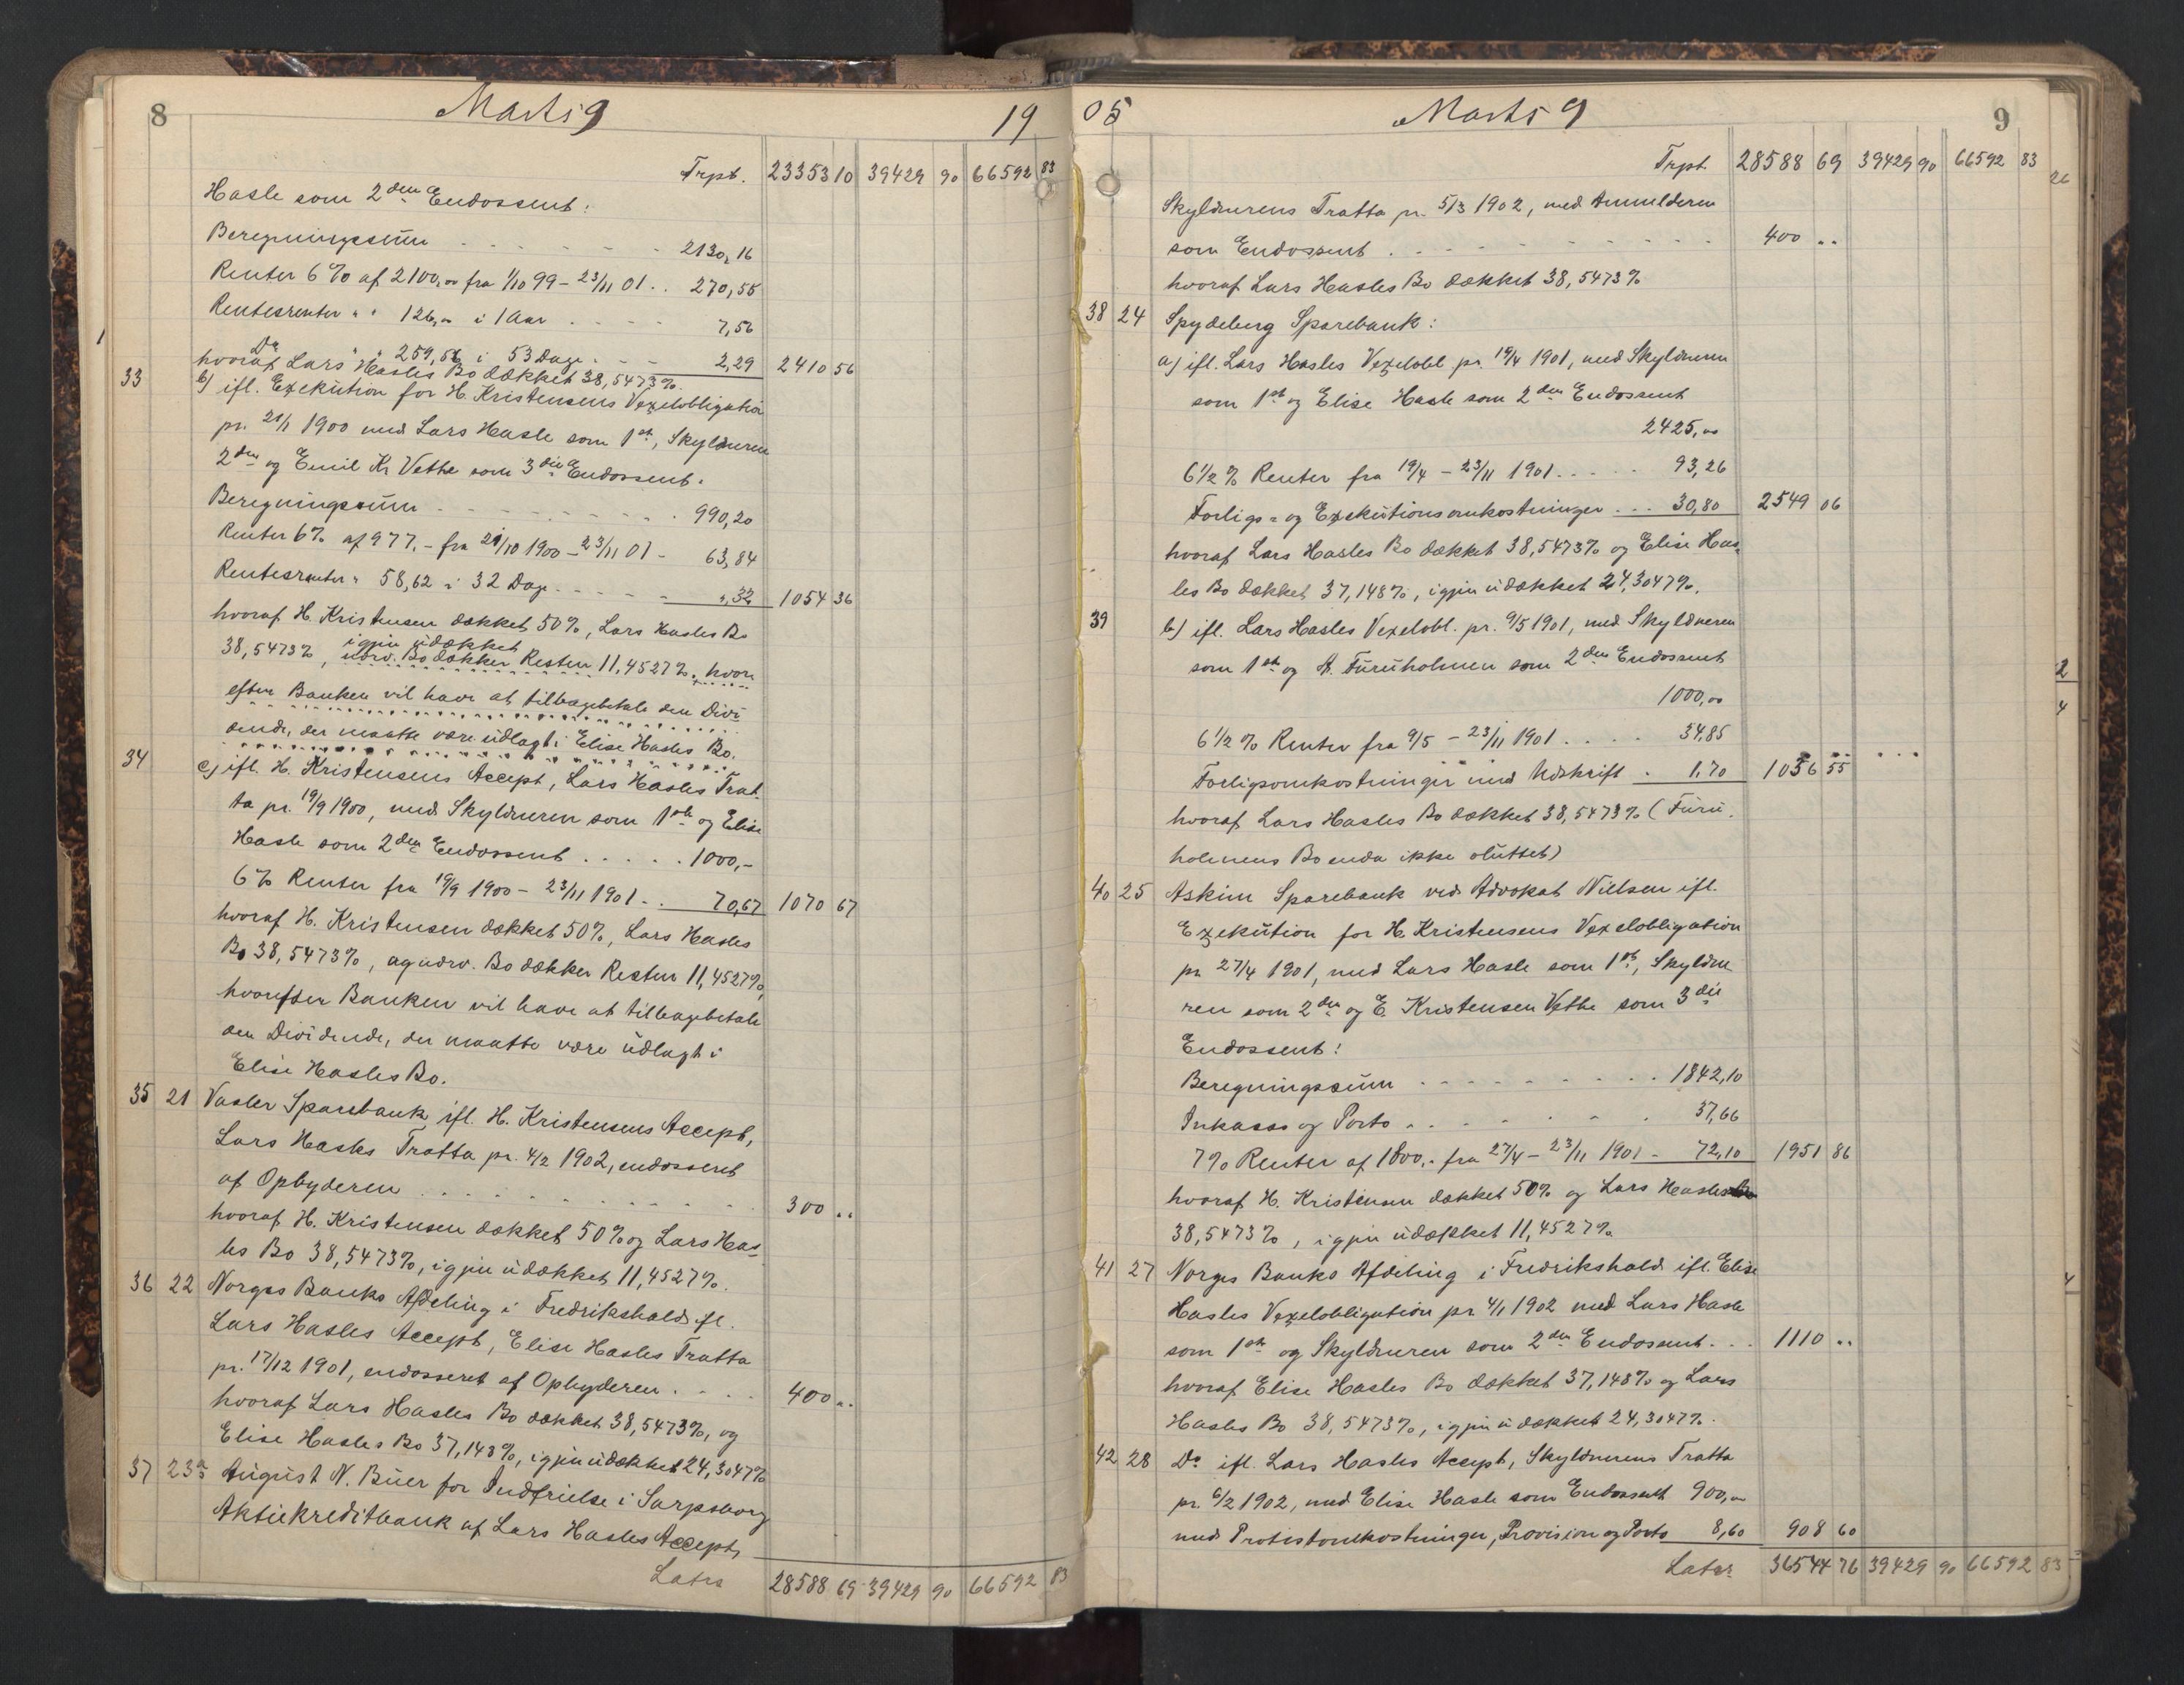 8 Marts 9 19
Trpt. 23353 10 39429 90 66592 83
Hasle som 2den Endossent:
Beregningssum 2130,16
Renter 6% af 2100,00 fra 1/10 99 - 23/11 01 .. 270,55
Rentesrenter " " 126,00 i 1 Aar 7,56
Do " " 259,56 i 53 Dage 2,29 2410 56
hvoraf Lars Hasles Bo dækket 38,5473%.
33 b) ifl. Exekution for H. Kristensens Vexelobligation
pr. 21/1 1900 med Lars Hasle som 1st, Skyldneren
2den og Emil Kr Vethe som 3die Endossent.
Beregningssum 990,20
Renter 6% af 977.- fra 21/10 1900 - 23/11 01 - 63,84
Rentesrenter " 58,62 i 32 Dage ",32 1054 36
hvoraf H. Kristensen dækket 50%, Lars Hasles Bo
igjen udækket
38,5473%, nærv. Bo dækker Resten 11,4527%, hvor
efter Banken vil have at tilbagebetale den Divi
dende, der maatte være udlagt i Elise Hasles Bo.
34 c) ifl. H. Kristensens Accept, Lars Hasles Trat-
ta pr. 19/9 1900, med Skyldneren som 1ste og Elise
Hasle som 2den Endossent . . . . . 1000,-
6% Renter fra 19/9 1900 - 23/11 1901 - . 70,67 1070 67
hvoraf H. Kristensen dækket 50%, Lars Hasles
Bo 38,5473%, og nærv. Bo dækker Resten 11,4527%,
hvorefter Banken vil have at tilbagebetale
den Dividende, der maatte være udlagt i
Elise Hasles Bo.
35 21 Vaaler Sparebank, ifl. H. Kristensens Accept,
Lars Hasles Tratta pr. 4/2 1902, endosseret
af Opbyderen 300 ..
hvoraf H. Kristensen dækket 50% og Lars Has-
les Bo 38,5473%, igjen udækket 11,4527%.
36 22 Norges Banks Afdeling i Fredrikshald ifl.
Lars Hasles Accept, Elise Hasles Tratta
pr. 17/12 1901, endosseret af Opbyderen . . . . 400 ..
hvoraf Lars Hasles Bo dækket 38,5473%, og
Elise Hasles Bo 37,148%, igjen udækket 24,3047%
37 23a August N. Buer for Indfrielse i Sarpsborg
Aktiekreditbank af Lars Hasles Accept,
Latus 28588 69 39429 90 66592 83
05 Marts 9 9
Trpt. 28588 69 39429 90 66592 83
Skyldnerens Tratta pr. 5/3 1902, med Anmelderen
som Endossent 400 ..
hvoraf Lars Hasles Bo dækket 38,5473%
38 24 Spydeberg Sparebank:
a) ifl. Lars Hasles Vexelobl. pr. 19/4 1901, med Skyldneren
som 1st og Elise Hasle som 2den Endossent
2425,00
6 1/2% Renter fra 19/4 - 23/11 1901 . . . . . 93,26
Forligs- og Exekutionsomkostninger . . . 30,80 2549 06
hvoraf Lars Hasles Bo dækket 38,5473% og Elise Has-
les Bo dækket 37,148%, igjen udækket 24,3047%.
39 b) ifl. Lars Hasles Vexelobl. pr. 9/5 1901, med Skyldneren
som 1st og A. Furuholmen som 2den Endossent
1000,00
6 1/2% Renter fra 9/5 - 23/11 1901 . . . . 34,85
Forligsomkostninger med Udskrift . 1,70 1036 55
hvoraf Lars Hasles Bo dækket 38,5473% (Furu-
holmens Bo enda ikke sluttet)
40 25 Askim Sparebank ved Advokat Nielsen ifl.
Exekution for H. Kristensens Vexelobligation
pr 27/4 1901, med Lars Hasle som 1st, Skyldne
ren som 2den og E. Kristensen Vethe som 3die
Endossent:
Beregningssum 1842,10
Inkasso og Porto 37,66
7% Renter af 1800,- fra 27/4 - 23/11 1901 - 72,10 1951 86
hvoraf H. Kristensen dækket 50% og Lars Hasles Bo
38,5473%, igjen udækket 11,4527%
41 27 Norges Banks Afdeling i Fredrikshald ifl. Elise
Hasles Vexelobligation pr 4/1 1902 med Lars Hasle
som 1st og Skyldneren som 2den Endossent . . . 1110 ..
hvoraf Elise Hasles Bo dækket 37,148% og Lars
Hasles Bo 38,5473%, igjen udækket 24,3047%.
42 28 Do ifl. Lars Hasles Accept, Skyldnerens Tratta
pr. 6/2 1902, med Elise Hasle som Endossent 900,00
med Protestomkostninger, Provision og Porto 8,60 908 60
Latus 36544 76 39429 90 66592 83